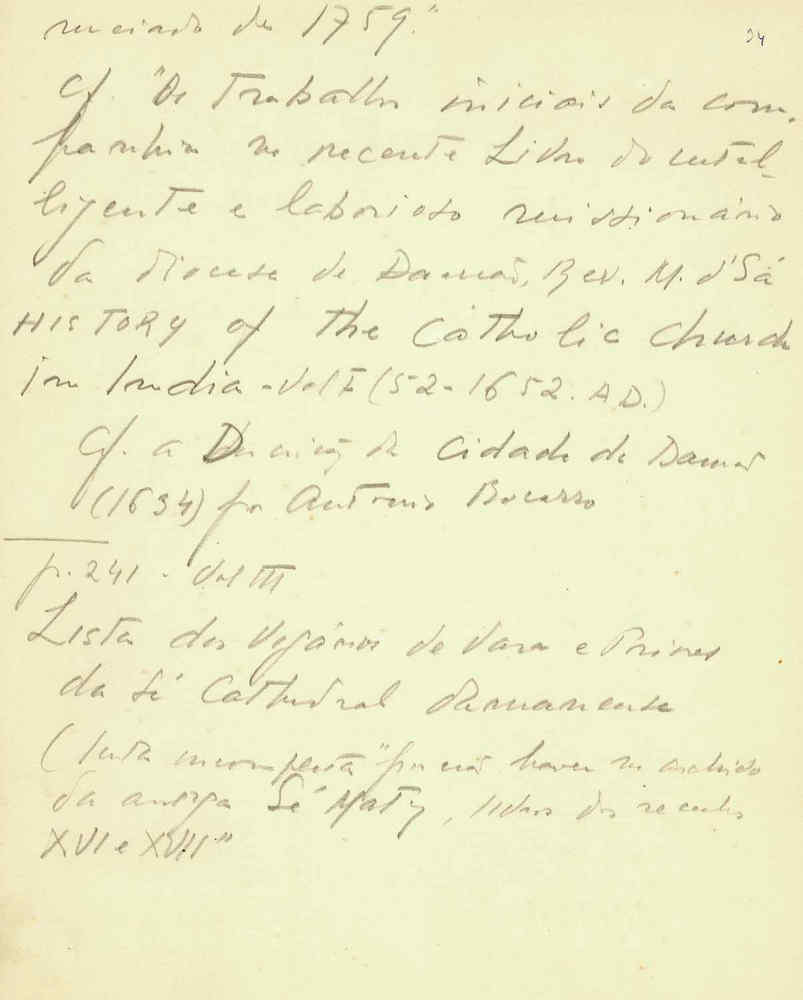 24
de 1759."
Cf. "Os Trabalhos iniciais da com-
panhia no recente Livro do intel-
ligente e laborioso missionário
da diocese de Damão, Rev. M. d'Sá
HISTORY of the Catholic Church
in India - Vol I (52-1652. A D.)
Cf. a da Cidade de Damão
(1634) por António Bocarro
p. 241 - Vol III
Lista dos Vigários de Vara e Priores
da Sé Cathedral damanense
(lista incompleta "por não haver no archivo
da antiga Sé Matriz, livros dos seculos
XVI e XVII"